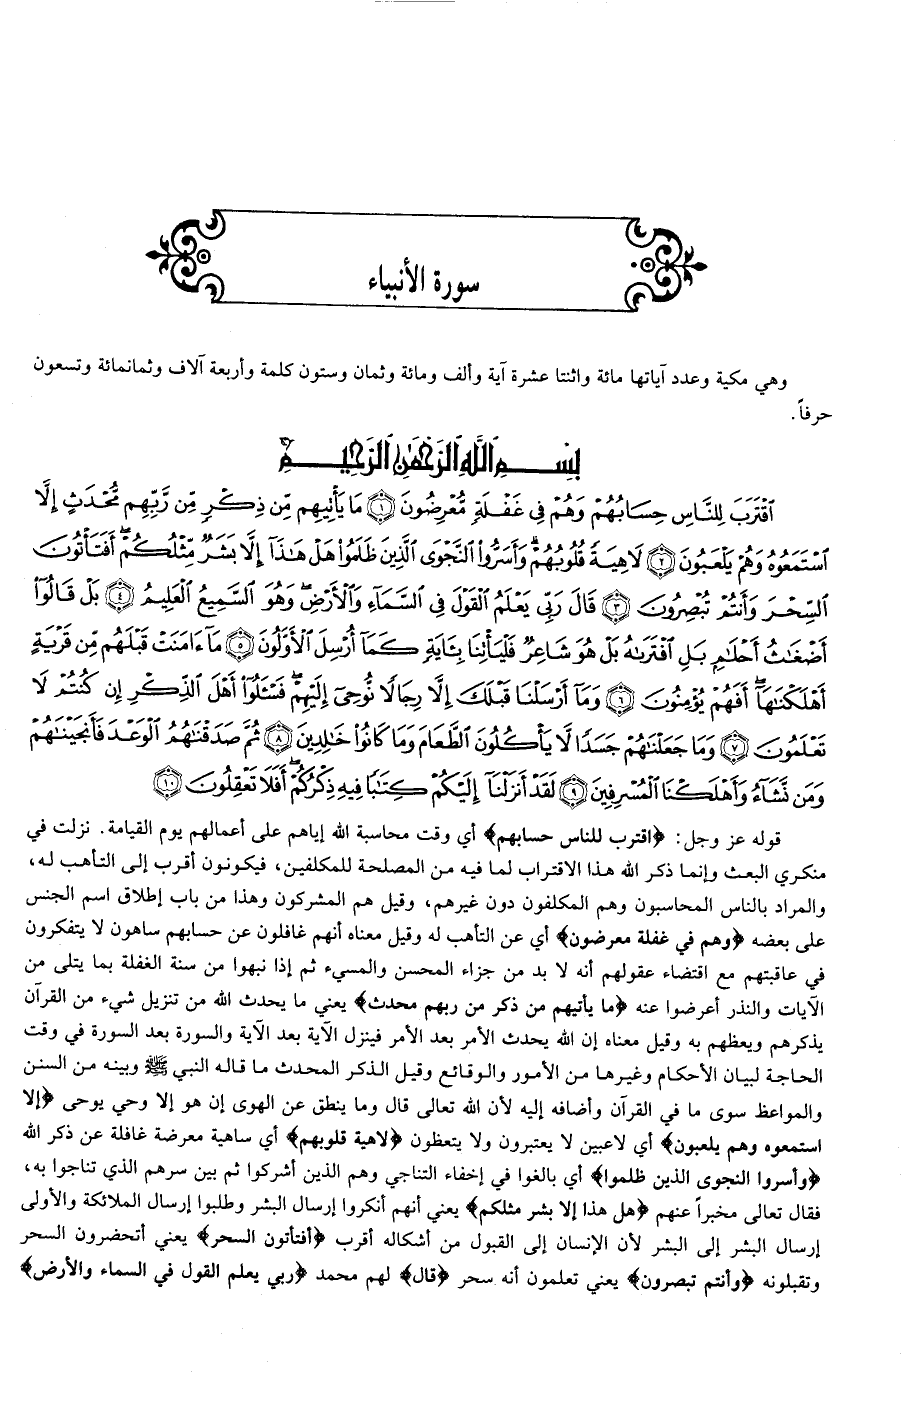 سورة الأنبياء
وهي مكية وعدد آياتها مائة واثنتا عشرة آية وألف ومائة وثمان وستون كلمة وأربعة آلاف وثمانمائة وتسعون
حرفاً.
بِسْمِ اللَّهِ الرَّحْمَٰنِ الرَّحِيمِ
ٱقْتَرَبَ لِلنَّاسِ حِسَابُهُمْ وَهُمْ فِي غَفْلَةٍ مُّعْرِضُونَ ١ مَا يَأْتِيهِم مِّن ذِكْرٍ مِّن رَّبِّهِم مُّحْدَثٍ إِلَّا
ٱسْتَمَعُوهُ وَهُمْ يَلْعَبُونَ ٢ لَاهِيَةً قُلُوبُهُمْ وَأَسَرُّوا۟ ٱلنَّجْوَى ٱلَّذِينَ ظَلَمُوا۟ هَلْ هَٰذَآ إِلَّا بَشَرٌ مِّثْلُكُمْ أَفَتَأْتُونَ
ٱلسِّحْرَ وَأَنتُمْ تُبْصِرُونَ ٣ قَالَ رَبِّي يَعْلَمُ ٱلْقَوْلَ فِي ٱلسَّمَآءِ وَٱلْأَرْضِ وَهُوَ ٱلسَّمِيعُ ٱلْعَلِيمُ ٤ بَلْ قَالُوٓا۟
أَضْغَٰثُ أَحْلَٰمٍ بَلِ ٱفْتَرَىٰهُ بَلْ هُوَ شَاعِرٌ فَلْيَأْتِنَا بِـَٔايَةٍ كَمَآ أُرْسِلَ ٱلْأَوَّلُونَ ٥ مَآ ءَامَنَتْ قَبْلَهُم مِّن قَرْيَةٍ
أَهْلَكْنَٰهَآ أَفَهُمْ يُؤْمِنُونَ ٦ وَمَآ أَرْسَلْنَا قَبْلَكَ إِلَّا رِجَالًا نُّوحِىٓ إِلَيْهِمْ فَسْـَٔلُوٓا۟ أَهْلَ ٱلذِّكْرِ إِن كُنتُمْ لَا
تَعْلَمُونَ ٧ وَمَا جَعَلْنَٰهُمْ جَسَدًا لَّا يَأْكُلُونَ ٱلطَّعَامَ وَمَا كَانُوا۟ خَٰلِدِينَ ٨ ثُمَّ صَدَقْنَٰهُمُ ٱلْوَعْدَ فَأَنجَيْنَٰهُمْ
وَمَن نَّشَآءُ وَأَهْلَكْنَا ٱلْمُسْرِفِينَ ٩ لَقَدْ أَنزَلْنَآ إِلَيْكُمْ كِتَٰبًا فِيهِ ذِكْرُكُمْ أَفَلَا تَعْقِلُونَ ١٠
قوله عز وجل: ﴿اقترب للناس حسابهم﴾ أي وقت محاسبة الله إياهم على أعمالهم يوم القيامة. نزلت في
منكري البعث وإنما ذكر الله هذا الاقتراب لما فيه من المصلحة للمكلفين، فيكونون أقرب إلى التأهب له،
والمراد بالناس المحاسبون وهم المكلفون دون غيرهم، وقيل هم المشركون وهذا من باب إطلاق اسم الجنس
على بعضه ﴿وهم في غفلة معرضون﴾ أي عن التأهب له وقيل معناه أنهم غافلون عن حسابهم ساهون لا يتفكرون
في عاقبتهم مع اقتضاء عقولهم أنه لا بد من جزاء المحسن والمسيء ثم إذا نبهوا من سنة الغفلة بما يتلى من
الآيات والنذر أعرضوا عنه ﴿ما يأتيهم من ذكر من ربهم محدث﴾ يعني ما يحدث الله من تنزيل شيء من القرآن
يذكرهم ويعظهم به وقيل معناه إن الله يحدث الأمر بعد الأمر فينزل الآية بعد الآية والسورة بعد السورة في وقت
الحاجة لبيان الأحكام وغيرها من الأمور والوقائع وقيل الذكر المحدث ما قاله النبي ﷺ وبينه من السنن
والمواعظ سوى ما في القرآن وأضافه إليه لأن الله تعالى قال وما ينطق عن الهوى إن هو إلا وحي يوحى ﴿إلا
استمعوه وهم يلعبون﴾ أي لاعبين لا يعتبرون ولا يتعظون ﴿لاهية قلوبهم﴾ أي ساهية معرضة غافلة عن ذكر الله
﴿وأسروا النجوى الذين ظلموا﴾ أي بالغوا في إخفاء التناجي وهم الذين أشركوا ثم بين سرهم الذي تناجوا به،
فقال تعالى مخبراً عنهم ﴿هل هذا إلا بشر مثلكم﴾ يعني أنهم أنكروا إرسال البشر وطلبوا إرسال الملائكة والأولى
إرسال البشر إلى البشر لأن الإنسان إلى القبول من أشكاله أقرب ﴿أفتأتون السحر﴾ يعني أتحضرون السحر
وتقبلونه ﴿وأنتم تبصرون﴾ يعني تعلمون أنه سحر ﴿قال﴾ لهم محمد ﴿ربي يعلم القول في السماء والأرض﴾